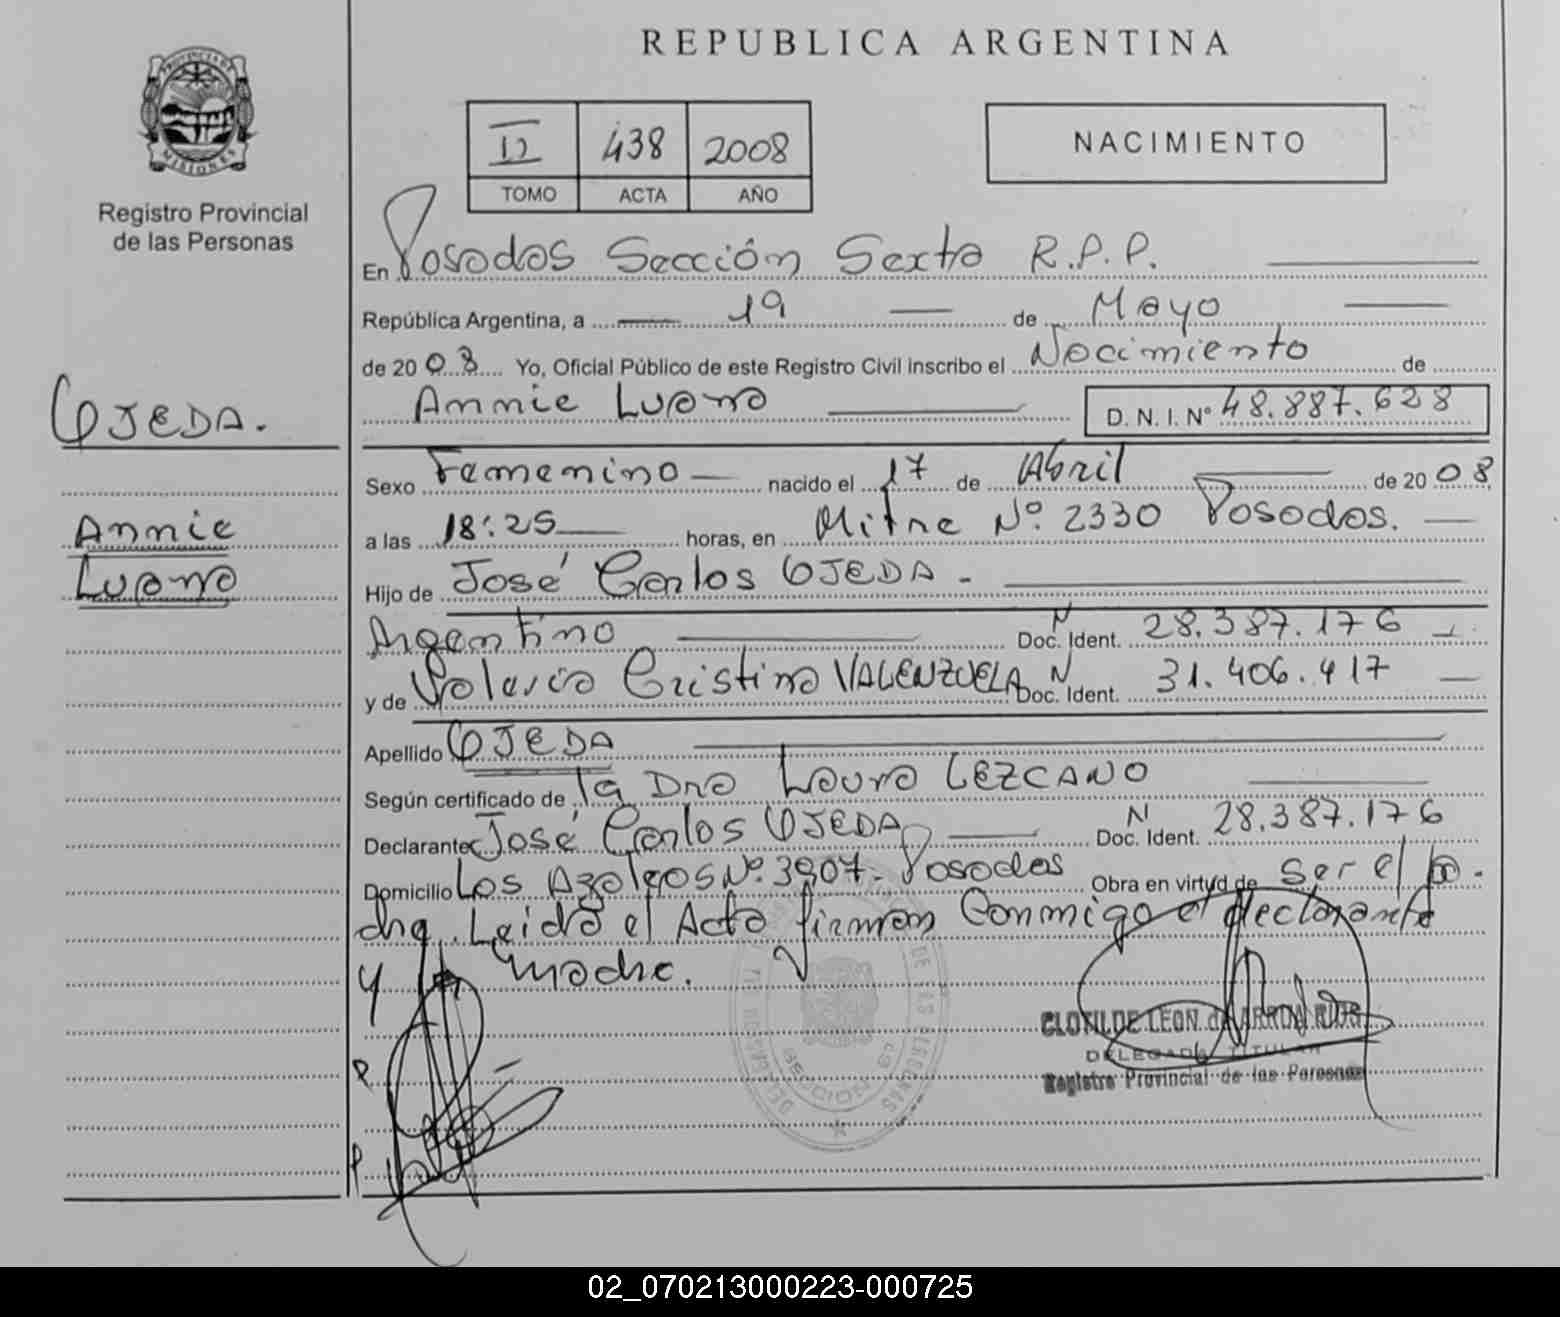 REPUBLICA ARGENTINA
PROVINCIA DE
MISIONES
Registro Provincial
de las Personas
II 438 2008
TOMO ACTA AÑO
NACIMIENTO
En Posadas Sección Sexta R.P.P.
República Argentina, a 19 de Mayo
de 2008 Yo, Oficial Público de este Registro Civil inscribo el Nacimiento de
Annie Luana D. N. I. Nº 48.887.628
OJEDA.
Annie
Luana
Sexo Femenino nacido el 17 de Abril de 2008
a las 18:25 horas, en Mitre Nº. 2330 Posadas.
Hijo de José Carlos OJEDA -
Argentino Doc. Ident. N 28.387.176
y de Valeria Cristina VALENZUELA Doc. Ident. N 31.406.417
Apellido OJEDA
Según certificado de la Dra Laura LEZCANO
Declarante José Carlos OJEDA Doc. Ident. N 28.387.176
Domicilio Los Azaleas Nº. 3907- Posadas Obra en virtud de ser el pa-
dre. Leida el Acta firman Conmigo el declarante
y madre.
DE LAS PERSONAS
SECCION 6ª
CLOTILDE LEON de ARRUA RIOS
DELEGADA TITULAR
Registro Provincial de las Personas
P
P
02_070213000223-000725